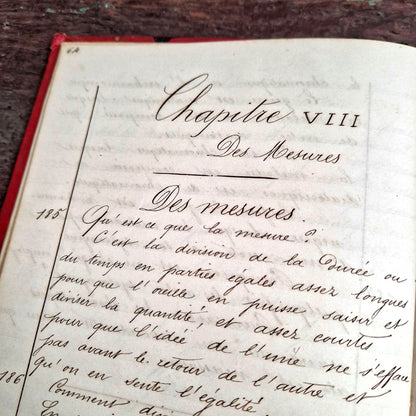 64
Chapitre VIII
Des Mesures
Des mesures.
185 Qu'est ce que la mesure ?
C'est la division de la Durée ou
du temps en parties égales assez longues
pour que l'oreille en puisse saisir et
diviser la quantité, et assez courtes
pour que l'idée de l'une ne s'efface
pas avant le retour de l'autre et
qu'on en sente l'égalité.
186 Comment
En